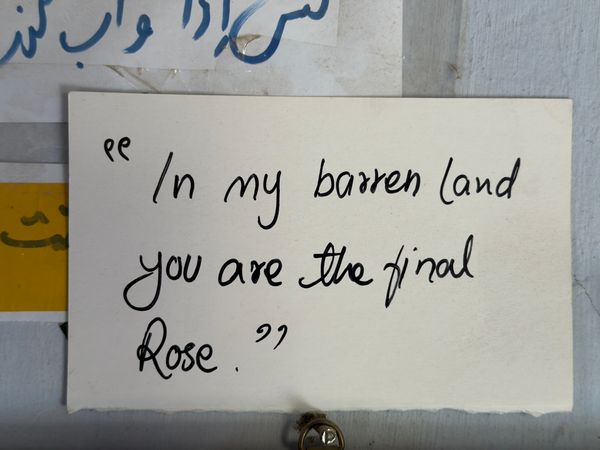 اذا و اب کنز
“ In my barren land
you are the final
Rose. ”